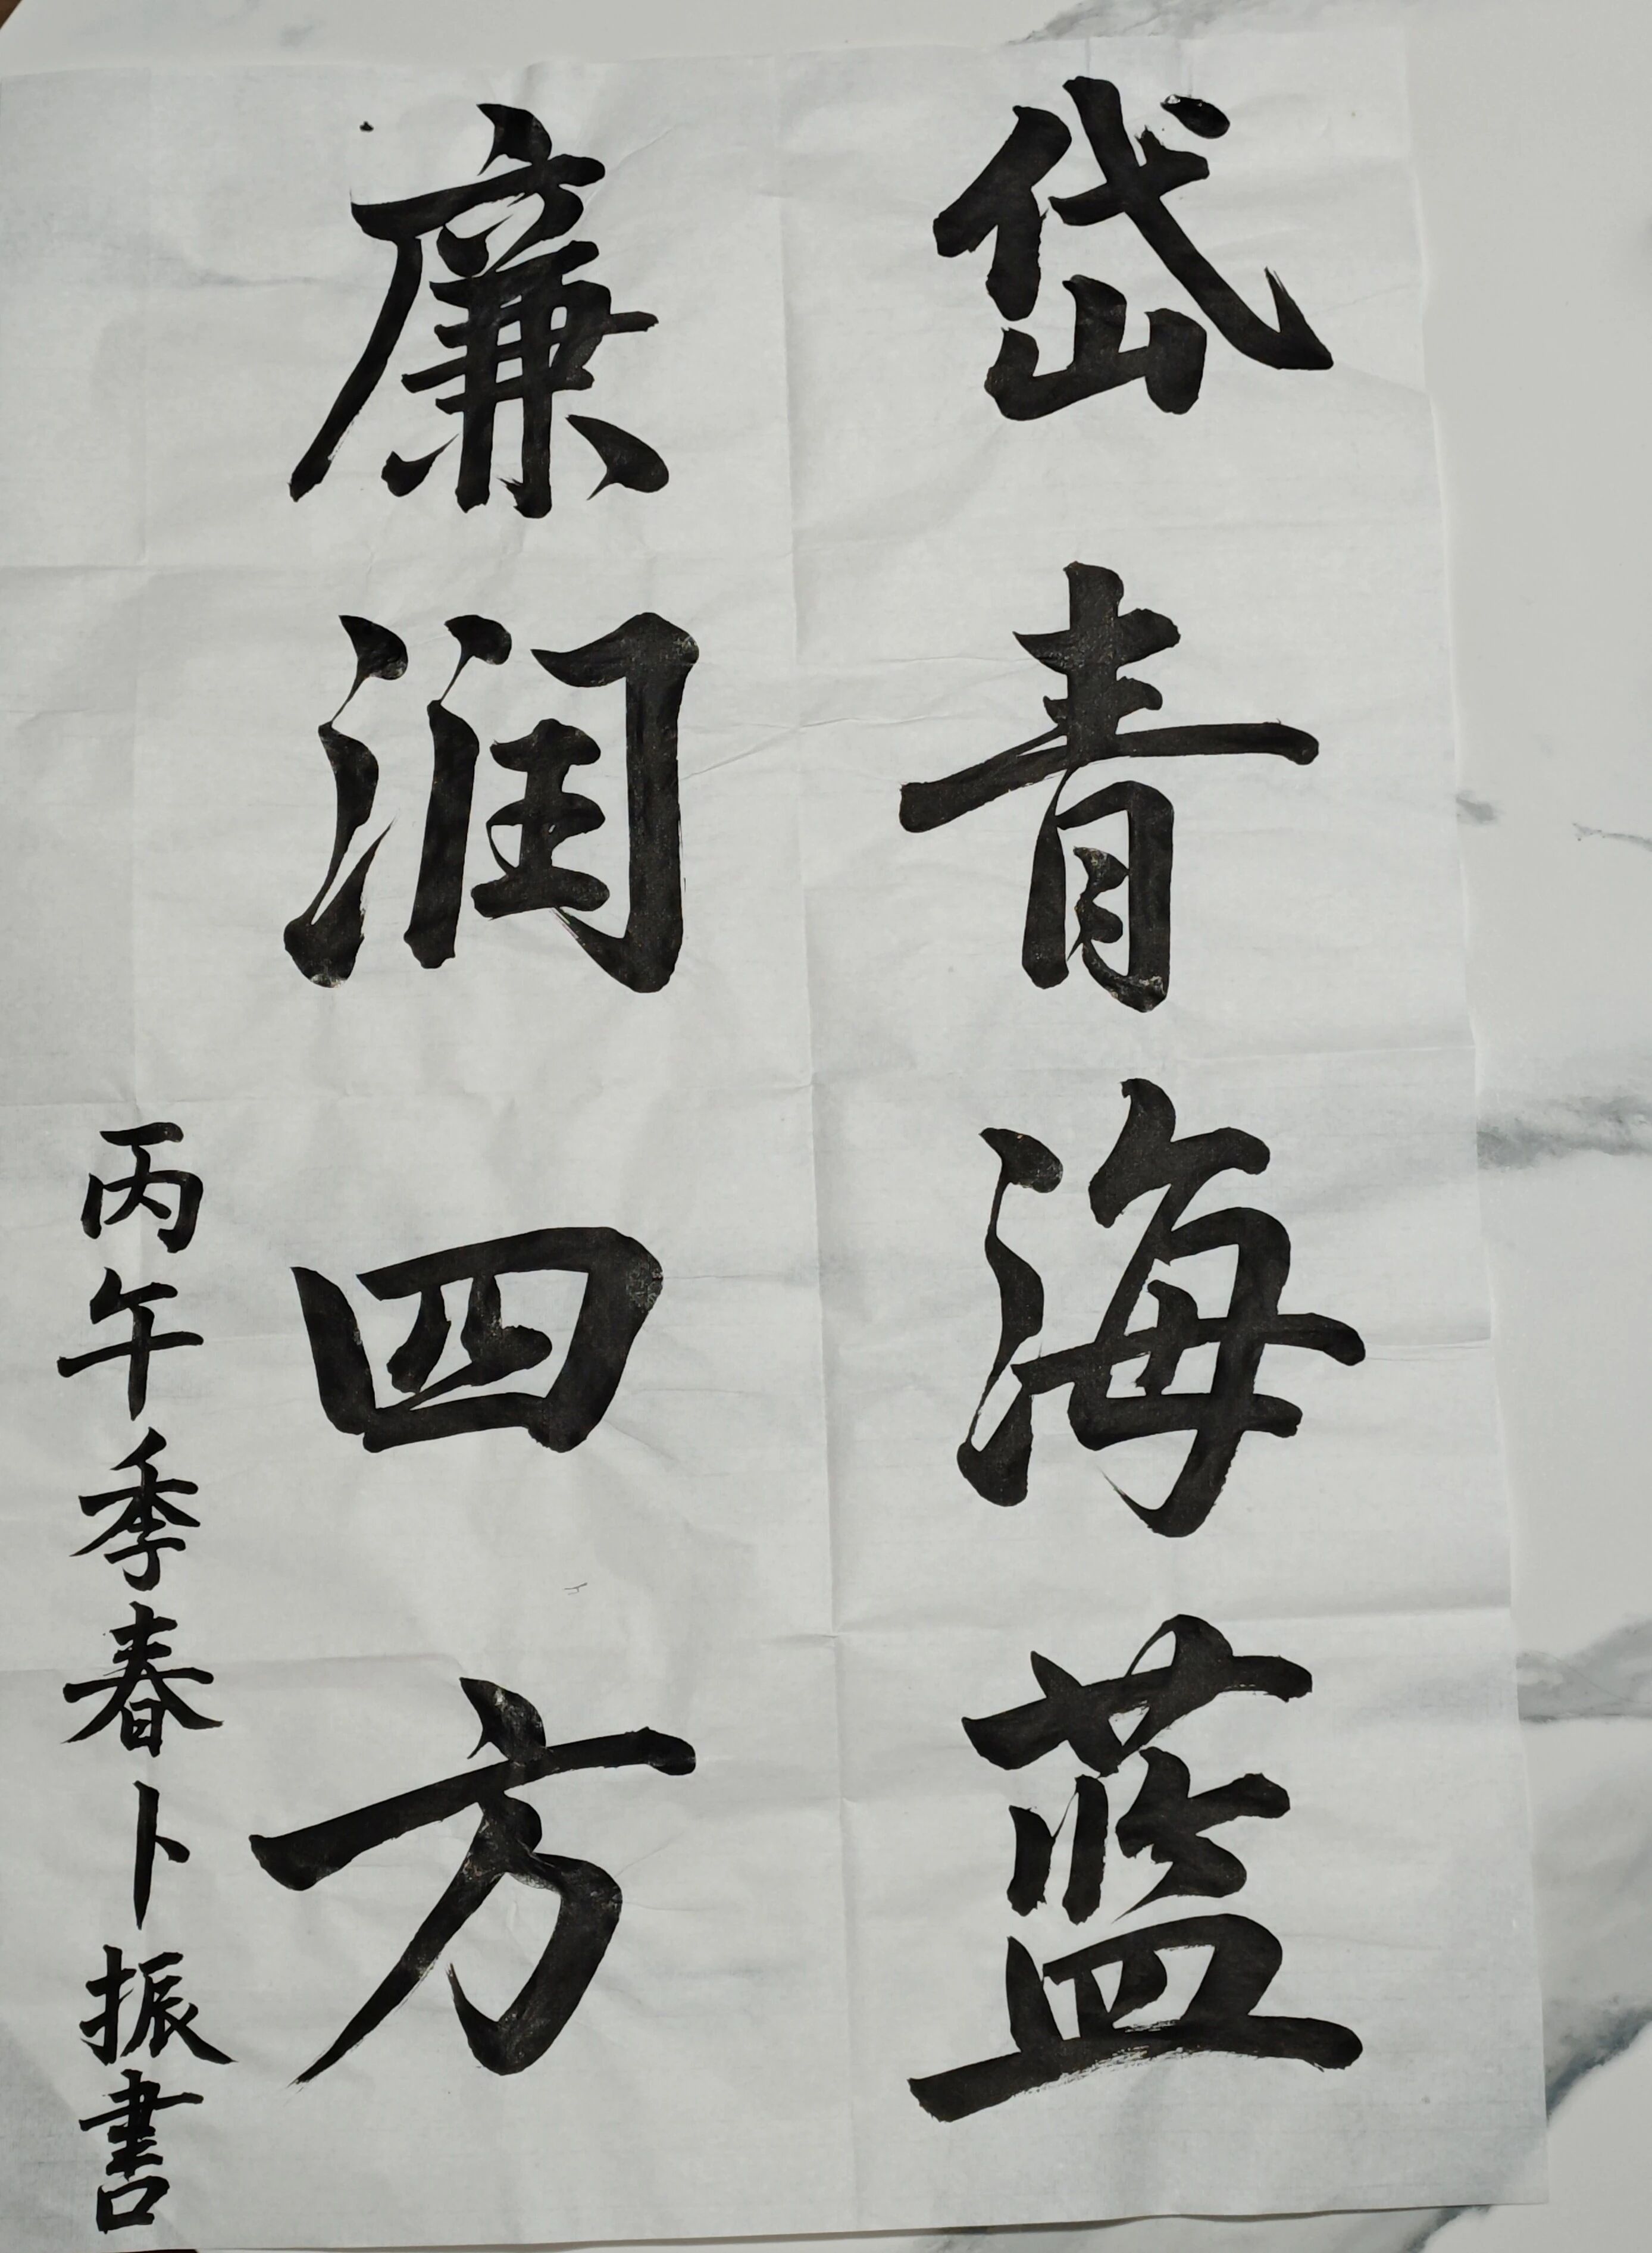 岱青海蓝
廉润四方
丙午季春卜振書